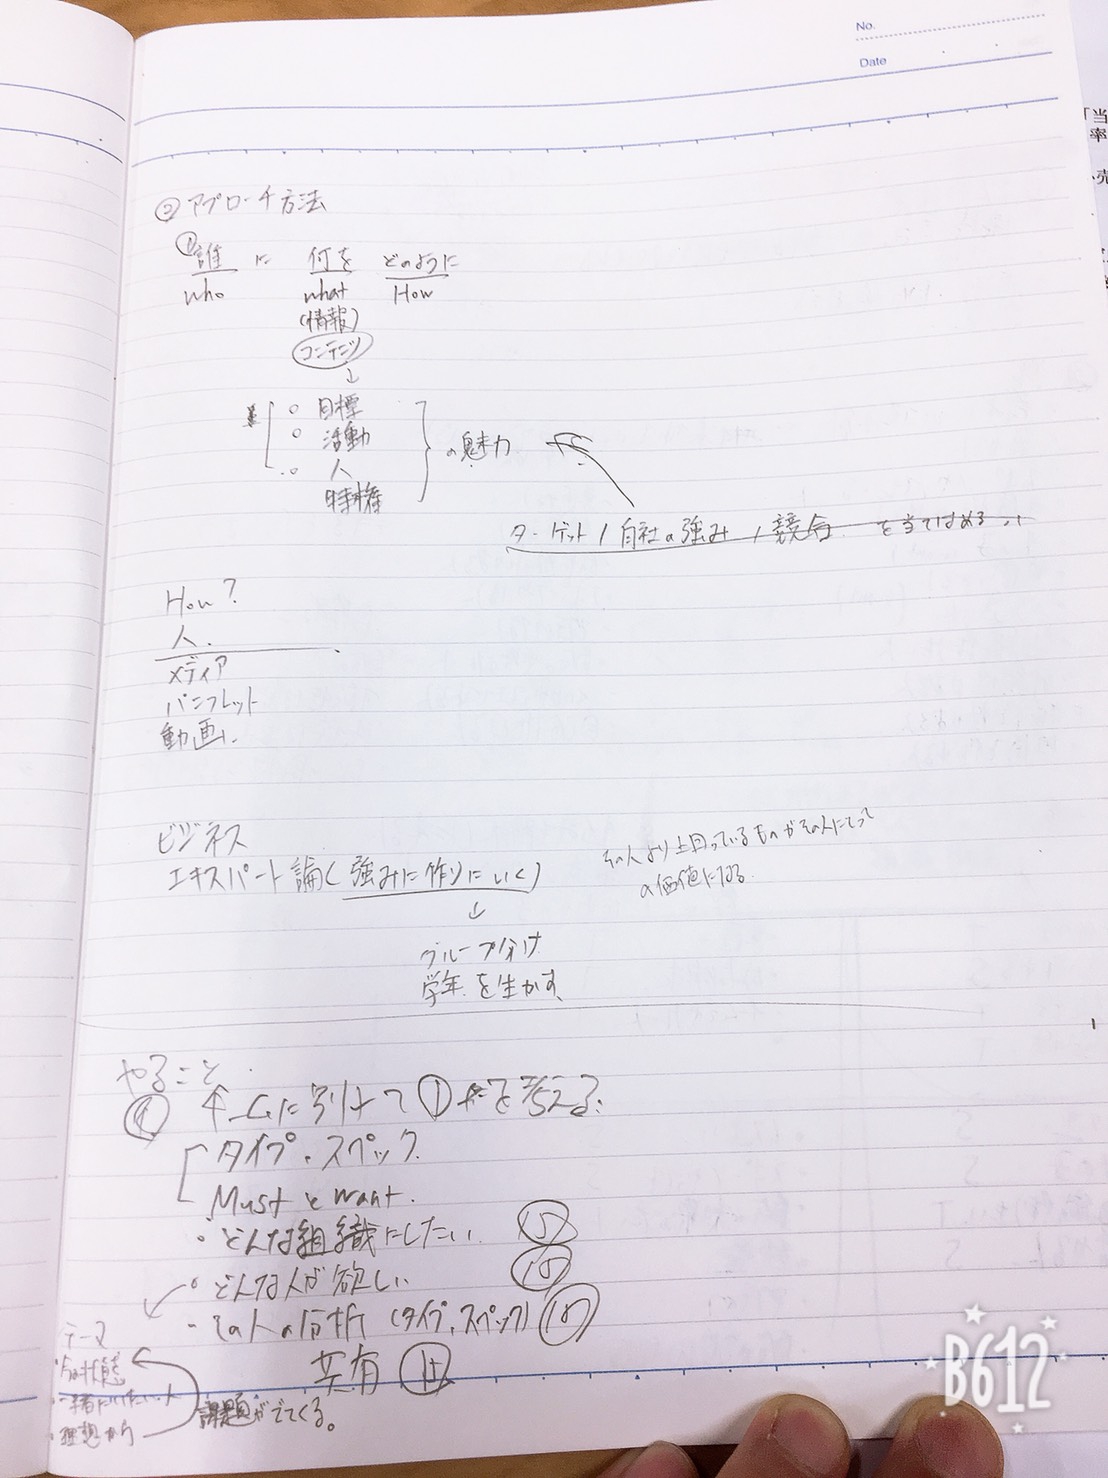 No.
Date
② アプローチ方法
① 誰 に 何を どのように
who what How
(情報)
コンテンツ
↓
○ 目標
○ 活動
○ 人
特権
の魅力
ターゲット / 自社の強み / 競合 を当てはめる
How?
人.
メディア
パンフレット
動画.
ビジネス
エキスパート論(強みに作りにいく)
その人より上回っているものがその人にとって
の価値になる
↓
グループ分け
学年を生かす
やること
チームに別れて①を考える
タイプ・スペック
Mustとwant.
・どんな組織にしたい ⑤
・どんな人が欲しい ⑩
・その人の分析 (タイプ,スペック) ⑩
共有 ⑮
テーマ
・一緒にいたい人
・理想から
課題がでてくる。
「当
率
B612